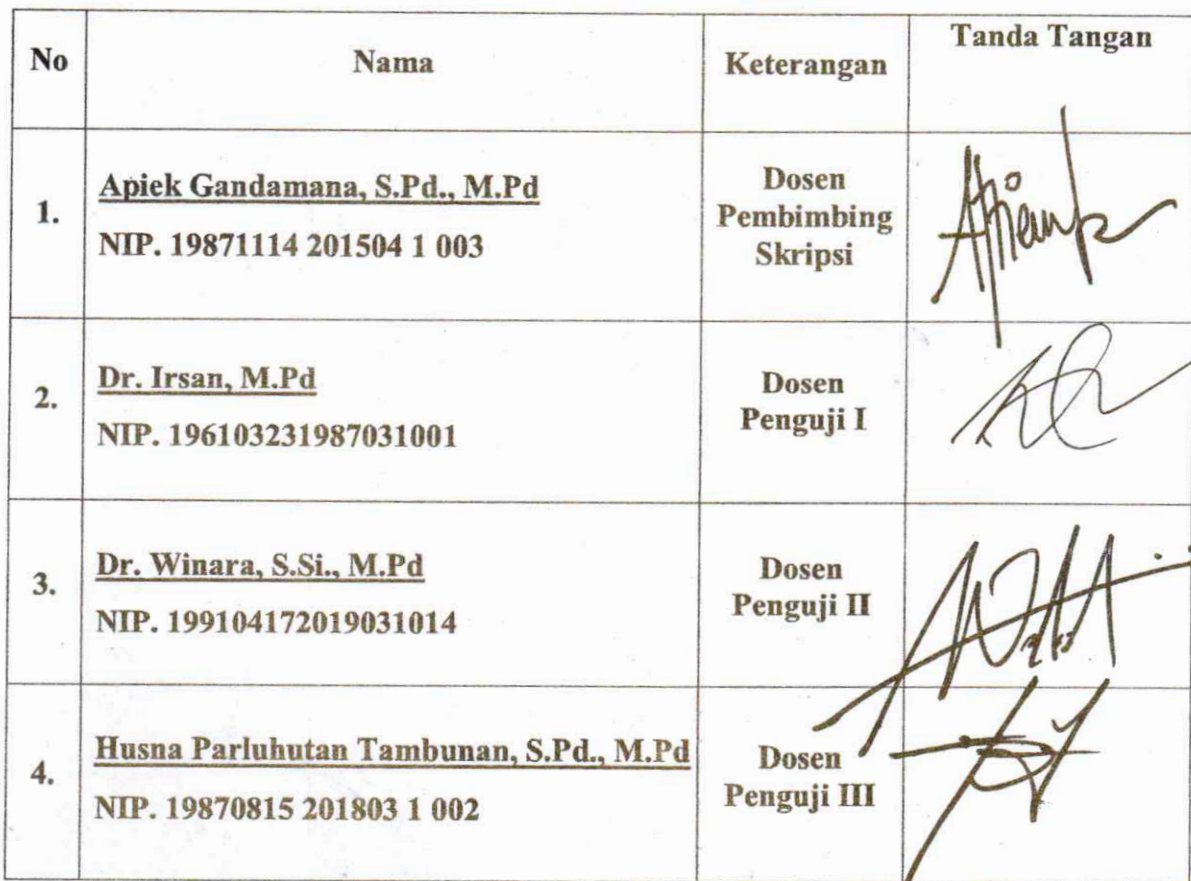 No Nama Keterangan Tanda Tangan
1. Apiek Gandamana, S.Pd., M.Pd
NIP. 19871114 201504 1 003
Dosen
Pembimbing
Skripsi
2. Dr. Irsan, M.Pd
NIP. 196103231987031001
Dosen
Penguji I
3. Dr. Winara, S.Si., M.Pd
NIP. 199104172019031014
Dosen
Penguji II
4. Husna Parluhutan Tambunan, S.Pd., M.Pd
NIP. 19870815 201803 1 002
Dosen
Penguji III